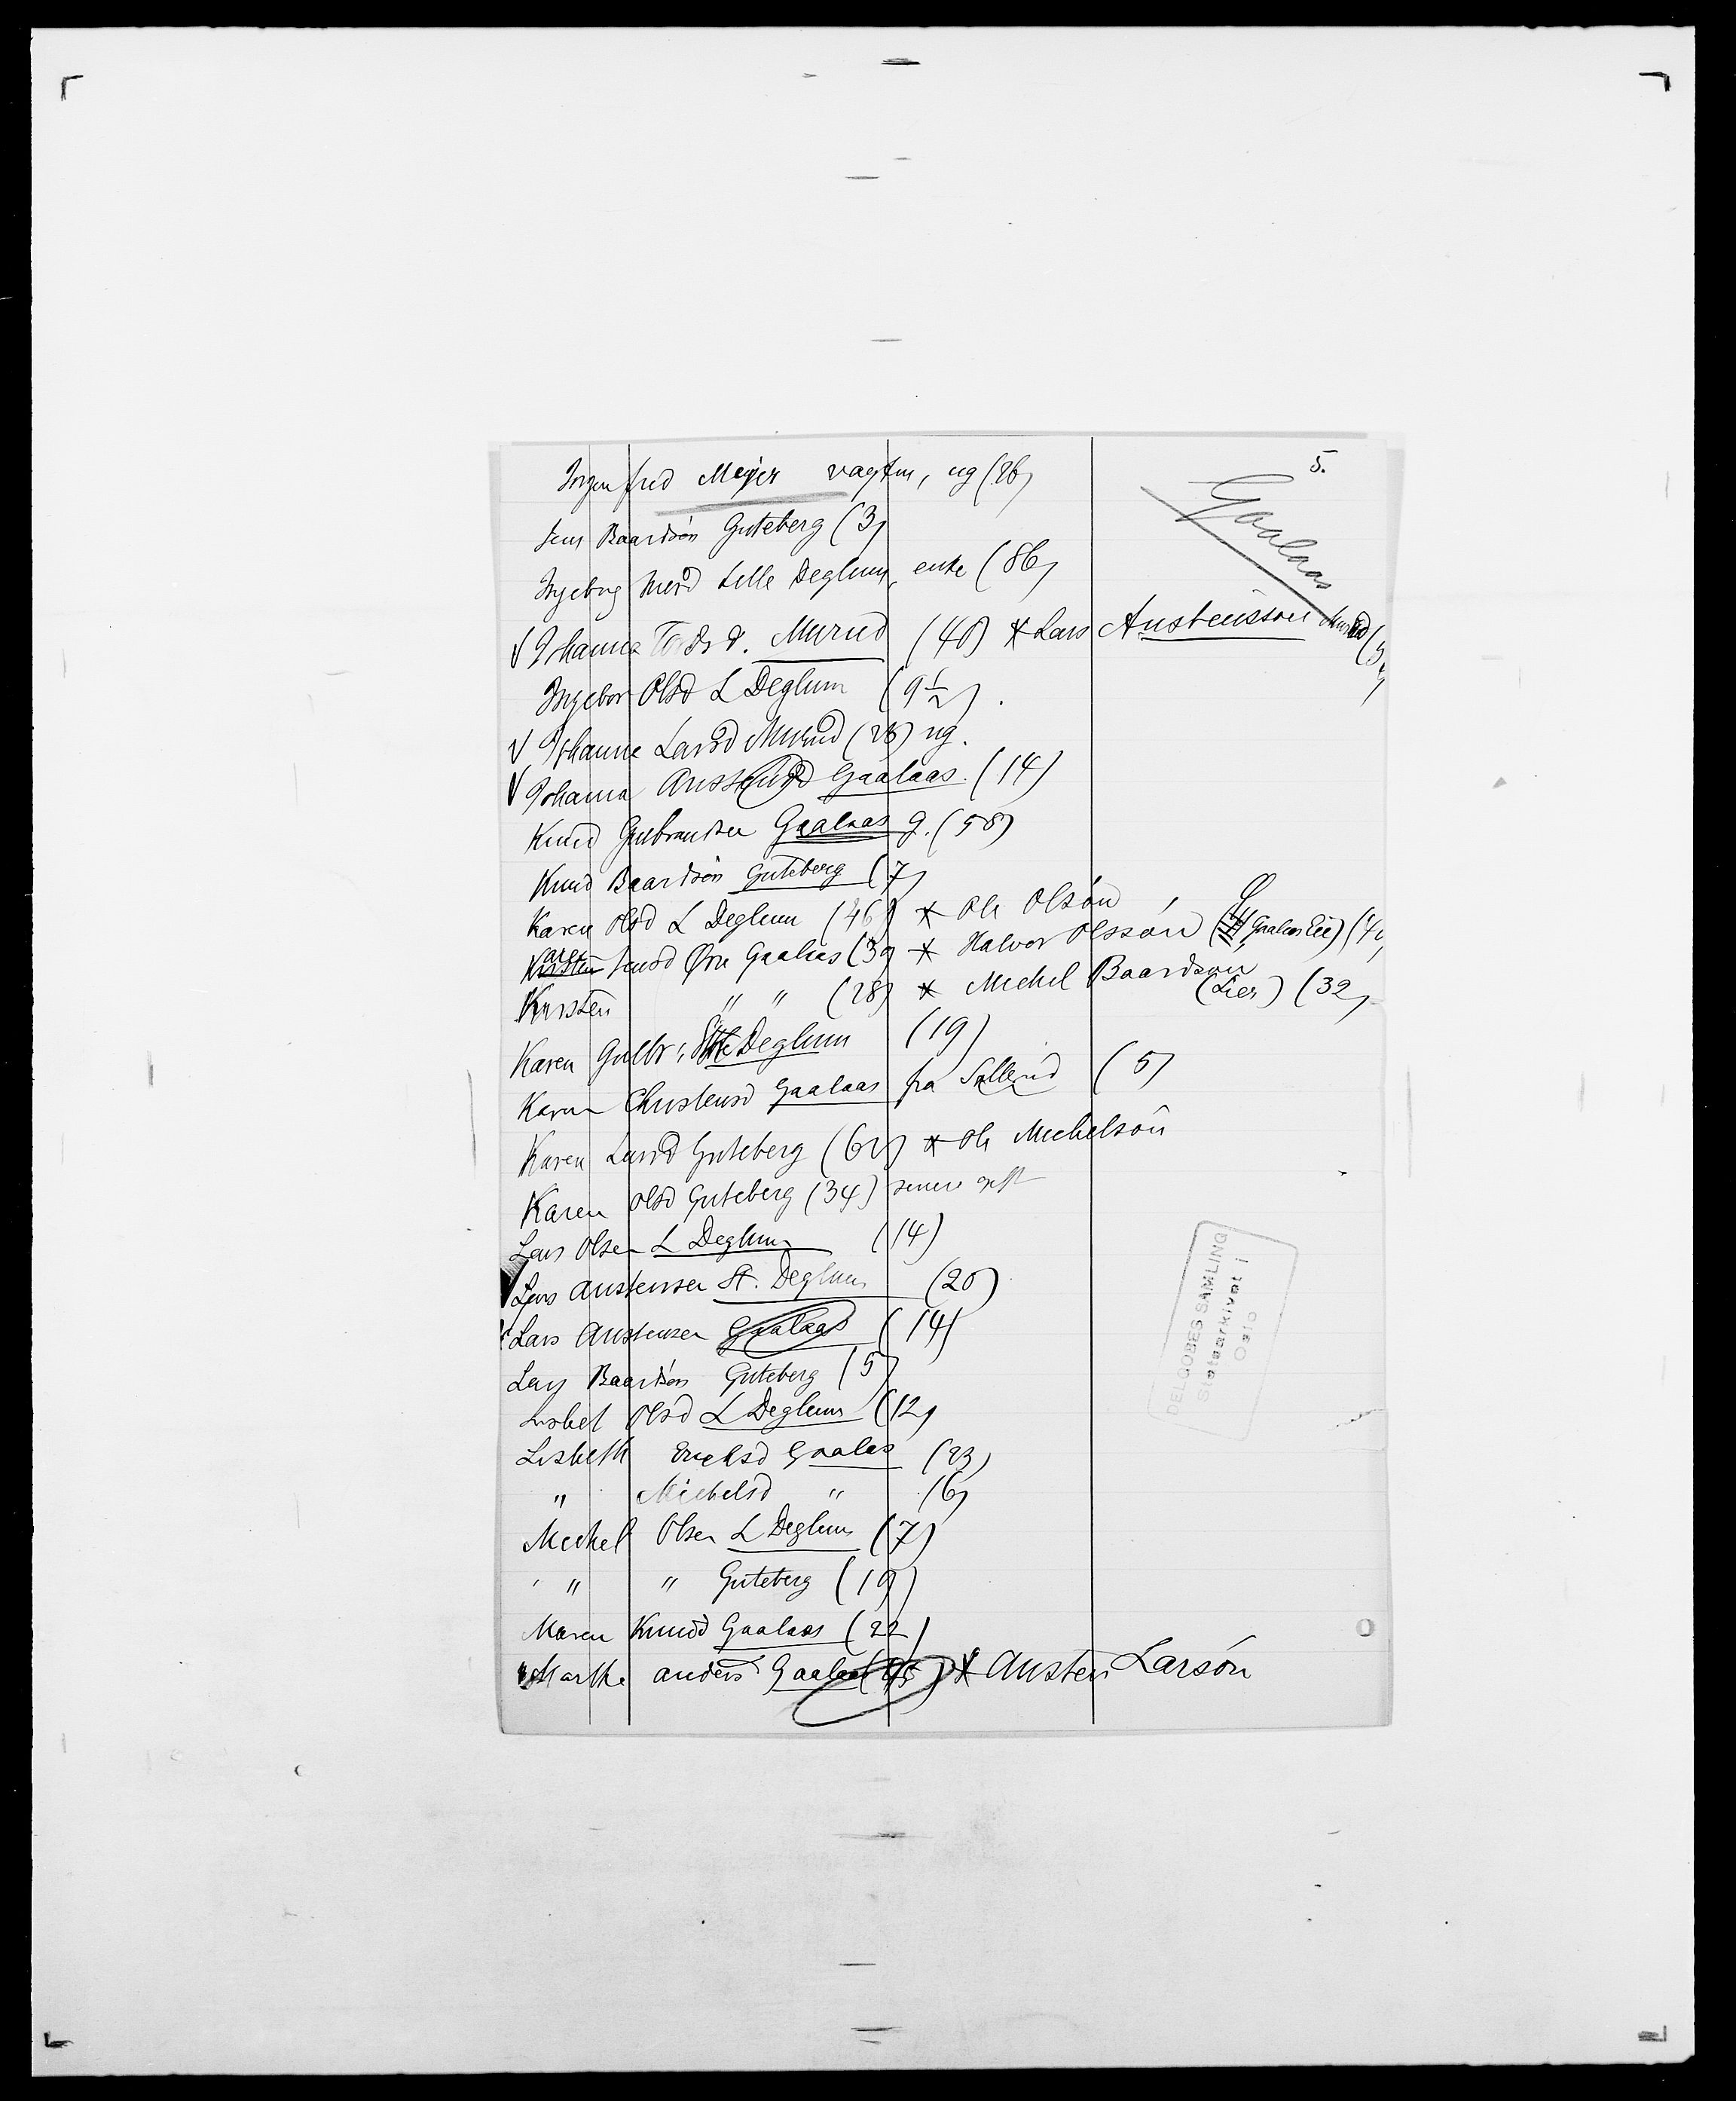 5.
Gaalaas
Jørgen fred Meyer vagtm, ug (26)
Jens Baardsön Guteberg (3)
Ingebrg Lille Deglum, enke (86)
√ Johanne d. Murud (40) * Lars Austensson Murud
Ingebor Olsd L Deglum (9½).
√ Johanne Larsd Murud (28) ug.
√ Johanna Austensd Gaalaas (14)
Knud Gulbrandsen Gaalaas g. (58)
Knud Baardsön Guteberg (7)
Karen Olsd L Deglum (46) * Ole Olsön
Karen Jensd Øvre Gaalaas (39) * Halvor Olssön (Gaalaas Eie) (40)
Kirsten " " (28) * Michel Baardsøn (Lier) (32)
Karen Gulbr: Deglum (19)
Karen Christensd Gaalaas fra Sollerud (5)
Karen Larsd Guteberg (62) * Ole Michelsön
Karen Olsd Guteberg (34) senere gift
Lars Olsen L Deglum (14)
√ Lars Austensen St. Deglum (20)
Lars Austensen Gaalaas (14)
Lars Baardsön Guteberg (5)
Lisbet Olsd L Deglum (12)
Lisbeth Erichsd Gaalas (23)
" Michelsd " (6)
Michel Olsen L Deglum (7)
" " Guteberg (19)
Maren Knudsd Gaalaas (22)
√ Marthe Anders Gaalaas (45) * Austen Larsön
DELGOBES SAMLING
Statsarkivet i
Oslo